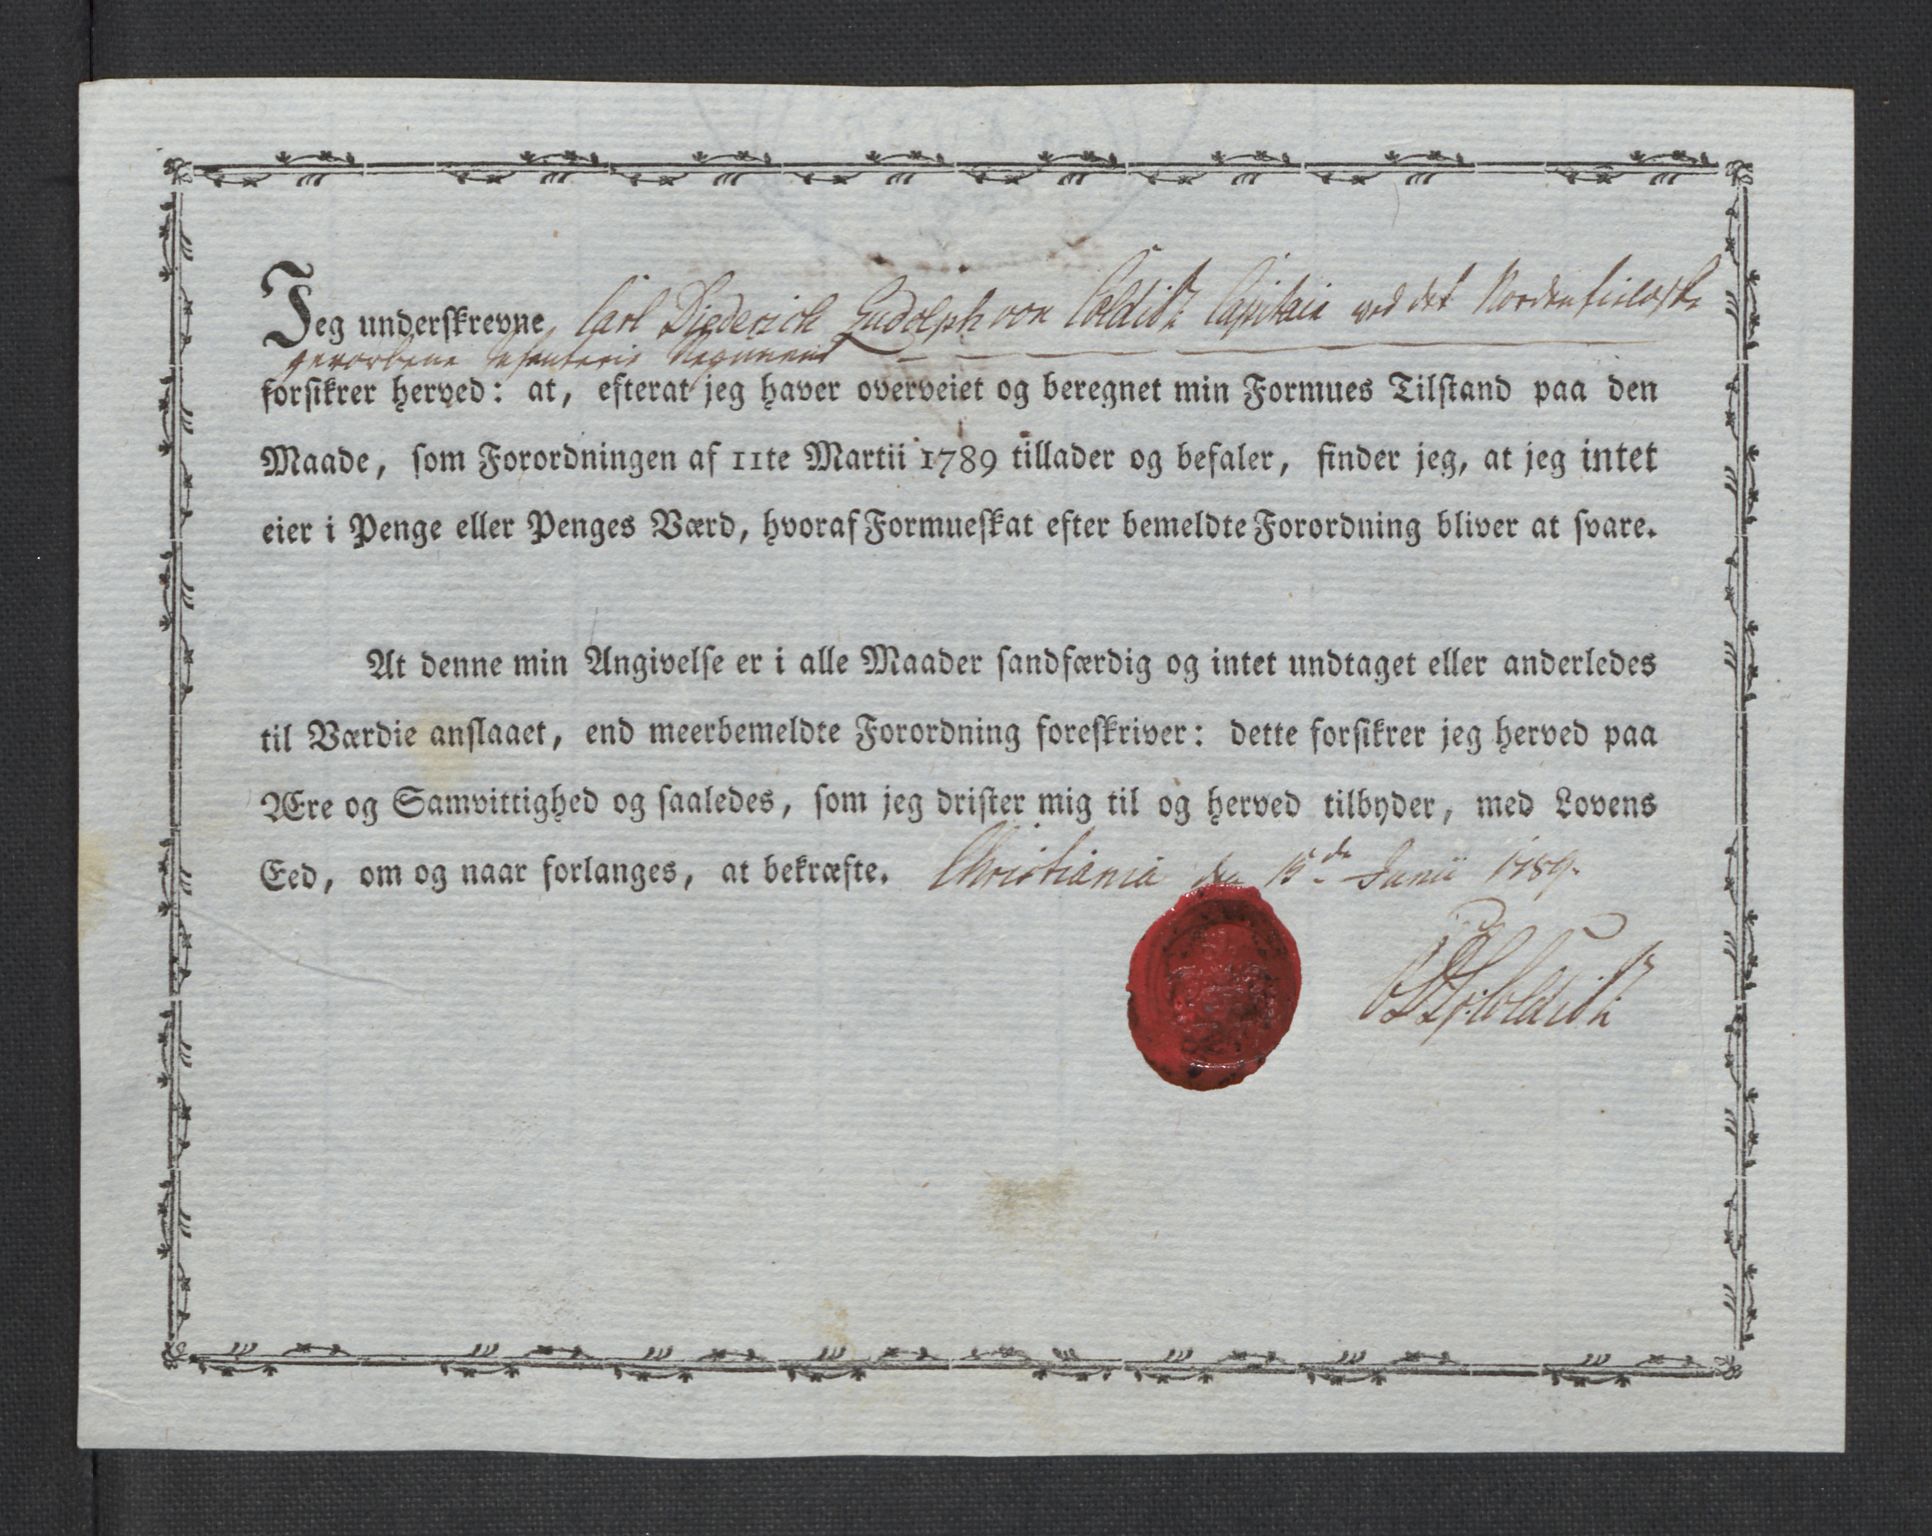 Jeg underskrevne, Carl Diederich Ludolph von Colditz Capitain ved det Nordenfieldske
gevorbene Infanterie Regiment
forsikrer herved: at, efterat jeg haver overveiet og beregnet min Formues Tilstand paa den
Maade, som Forordningen af 11te Martii 1789 tillader og befaler, finder jeg, at jeg intet
eier i Penge eller Penges Værd, hvoraf Formueskat efter bemeldte Forordning bliver at svare.
At denne min Angivelse er i alle Maader sandfærdig og intet undtaget eller anderledes
til Værdie anslaaet, end meerbemeldte Forordning foreskriver: dette forsikrer jeg herved paa
Ære og Samvittighed og saaledes, som jeg drister mig til og herved tilbyder, med Lovens
Eed, om og naar forlanges, at bekræfte. Christiania den 15de Junii 1789.
CDLvColditz